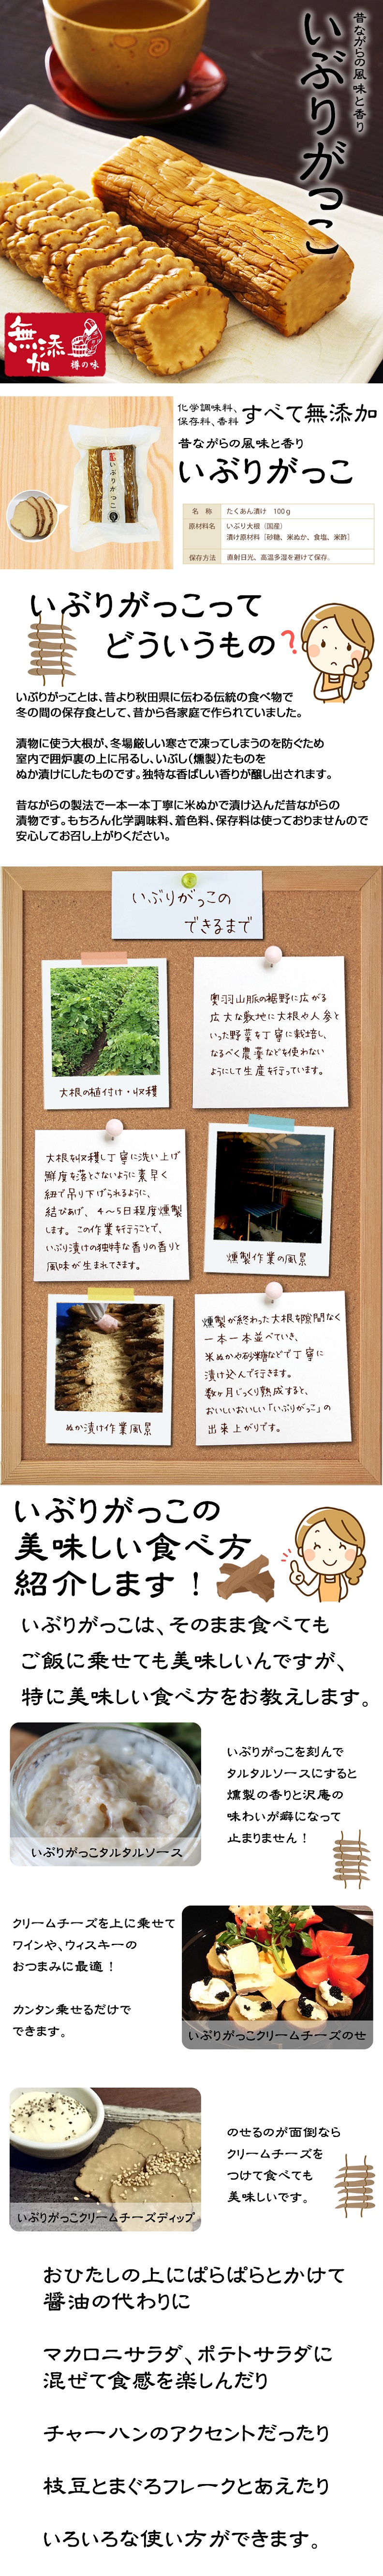 昔ながらの風味と香り
いぶりがっこ
無添加
樽の味
化学調味料、
保存料、香料
すべて無添加
昔ながらの風味と香り
いぶりがっこ
いぶりがっこ
名　称　たくあん漬け　100ｇ
原材料名　いぶり大根（国産）
漬け原材料［砂糖、米ぬか、食塩、米酢］
保存方法　直射日光、高温多湿を避けて保存。
いぶりがっこって
どういうもの?
いぶりがっことは、昔より秋田県に伝わる伝統の食べ物で
冬の間の保存食として、昔から各家庭で作られていました。
漬物に使う大根が、冬場厳しい寒さで凍ってしまうのを防ぐため
室内で囲炉裏の上に吊るし、いぶし（燻製）たものを
ぬか漬けにしたものです。独特な香ばしい香りが醸し出されます。
昔ながらの製法で一本一本丁寧に米ぬかで漬け込んだ昔ながらの
漬物です。もちろん化学調味料、着色料、保存料は使っておりませんので
安心してお召し上がりください。
いぶりがっこの
できるまで
大根の植付け・収穫
奥羽山脈の裾野に広がる
広大な敷地に大根や人参と
いった野菜を丁寧に栽培し、
なるべく農薬などを使わない
ようにして生産を行っています。
大根を収穫し丁寧に洗い上げ
鮮度を落とさないように素早く
紐で吊り下げられるように、
結びあげ、４〜５日程度燻製
します。この作業を行うことで、
いぶり漬けの独特な香りの香りと
風味が生まれてきます。
燻製作業の風景
ぬか漬け作業風景
燻製が終わった大根を隙間なく
一本一本並べていき、
米ぬかや砂糖などで丁寧に
漬け込んで行きます。
数ヶ月じっくり熟成すると、
おいしいおいしい「いぶりがっこ」の
出来上がりです。
いぶりがっこの
美味しい食べ方
紹介します！
いぶりがっこは、そのまま食べても
ご飯に乗せても美味しいんですが、
特に美味しい食べ方をお教えします。
いぶりがっこタルタルソース
いぶりがっこを刻んで
タルタルソースにすると
燻製の香りと沢庵の
味わいが癖になって
止まりません！
クリームチーズを上に乗せて
ワインや、ウィスキーの
おつまみに最適！
カンタン乗せるだけで
できます。
いぶりがっこクリームチーズのせ
いぶりがっこクリームチーズディップ
のせるのが面倒なら
クリームチーズを
つけて食べても
美味しいです。
おひたしの上にぱらぱらとかけて
醤油の代わりに
マカロニサラダ、ポテトサラダに
混ぜて食感を楽しんだり
チャーハンのアクセントだったり
枝豆とまぐろフレークとあえたり
いろいろな使い方ができます。